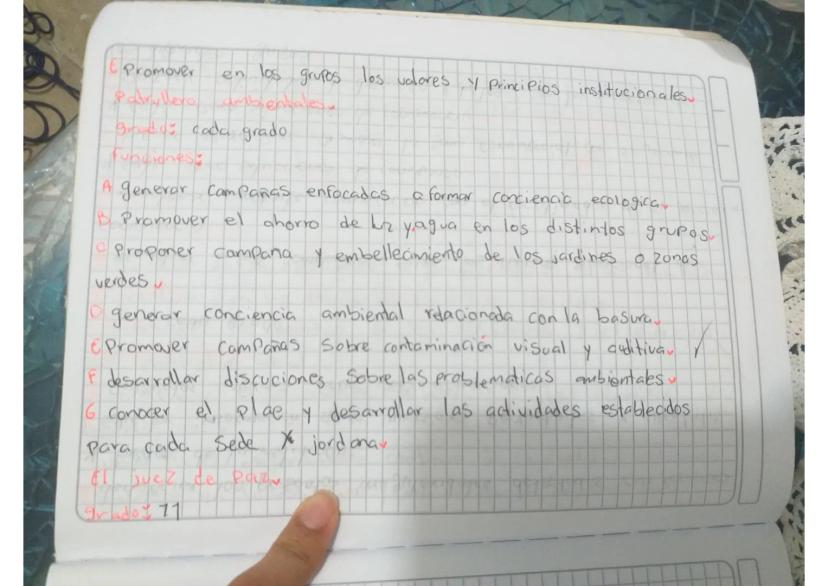 E promover en los grupos los valores y principios institucionales.
Patrullero ambientales.
grado: cada grado
funciones:
A generar campañas enfocadas a formar conciencia ecologica.
B Promover el ahorro de luz y agua en los distintos grupos.
C proponer campana y embellecimiento de los jardines o zonas
verdes.
D generar conciencia ambiental relacionada con la basura.
E promover campañas sobre contaminación visual y auditiva.
F desarrollar discuciones sobre las problematicas ambientales
G conocer el plae y desarrollar las actividades establecidos
para cada sede x jordana
El juez de paz.
grado: 11